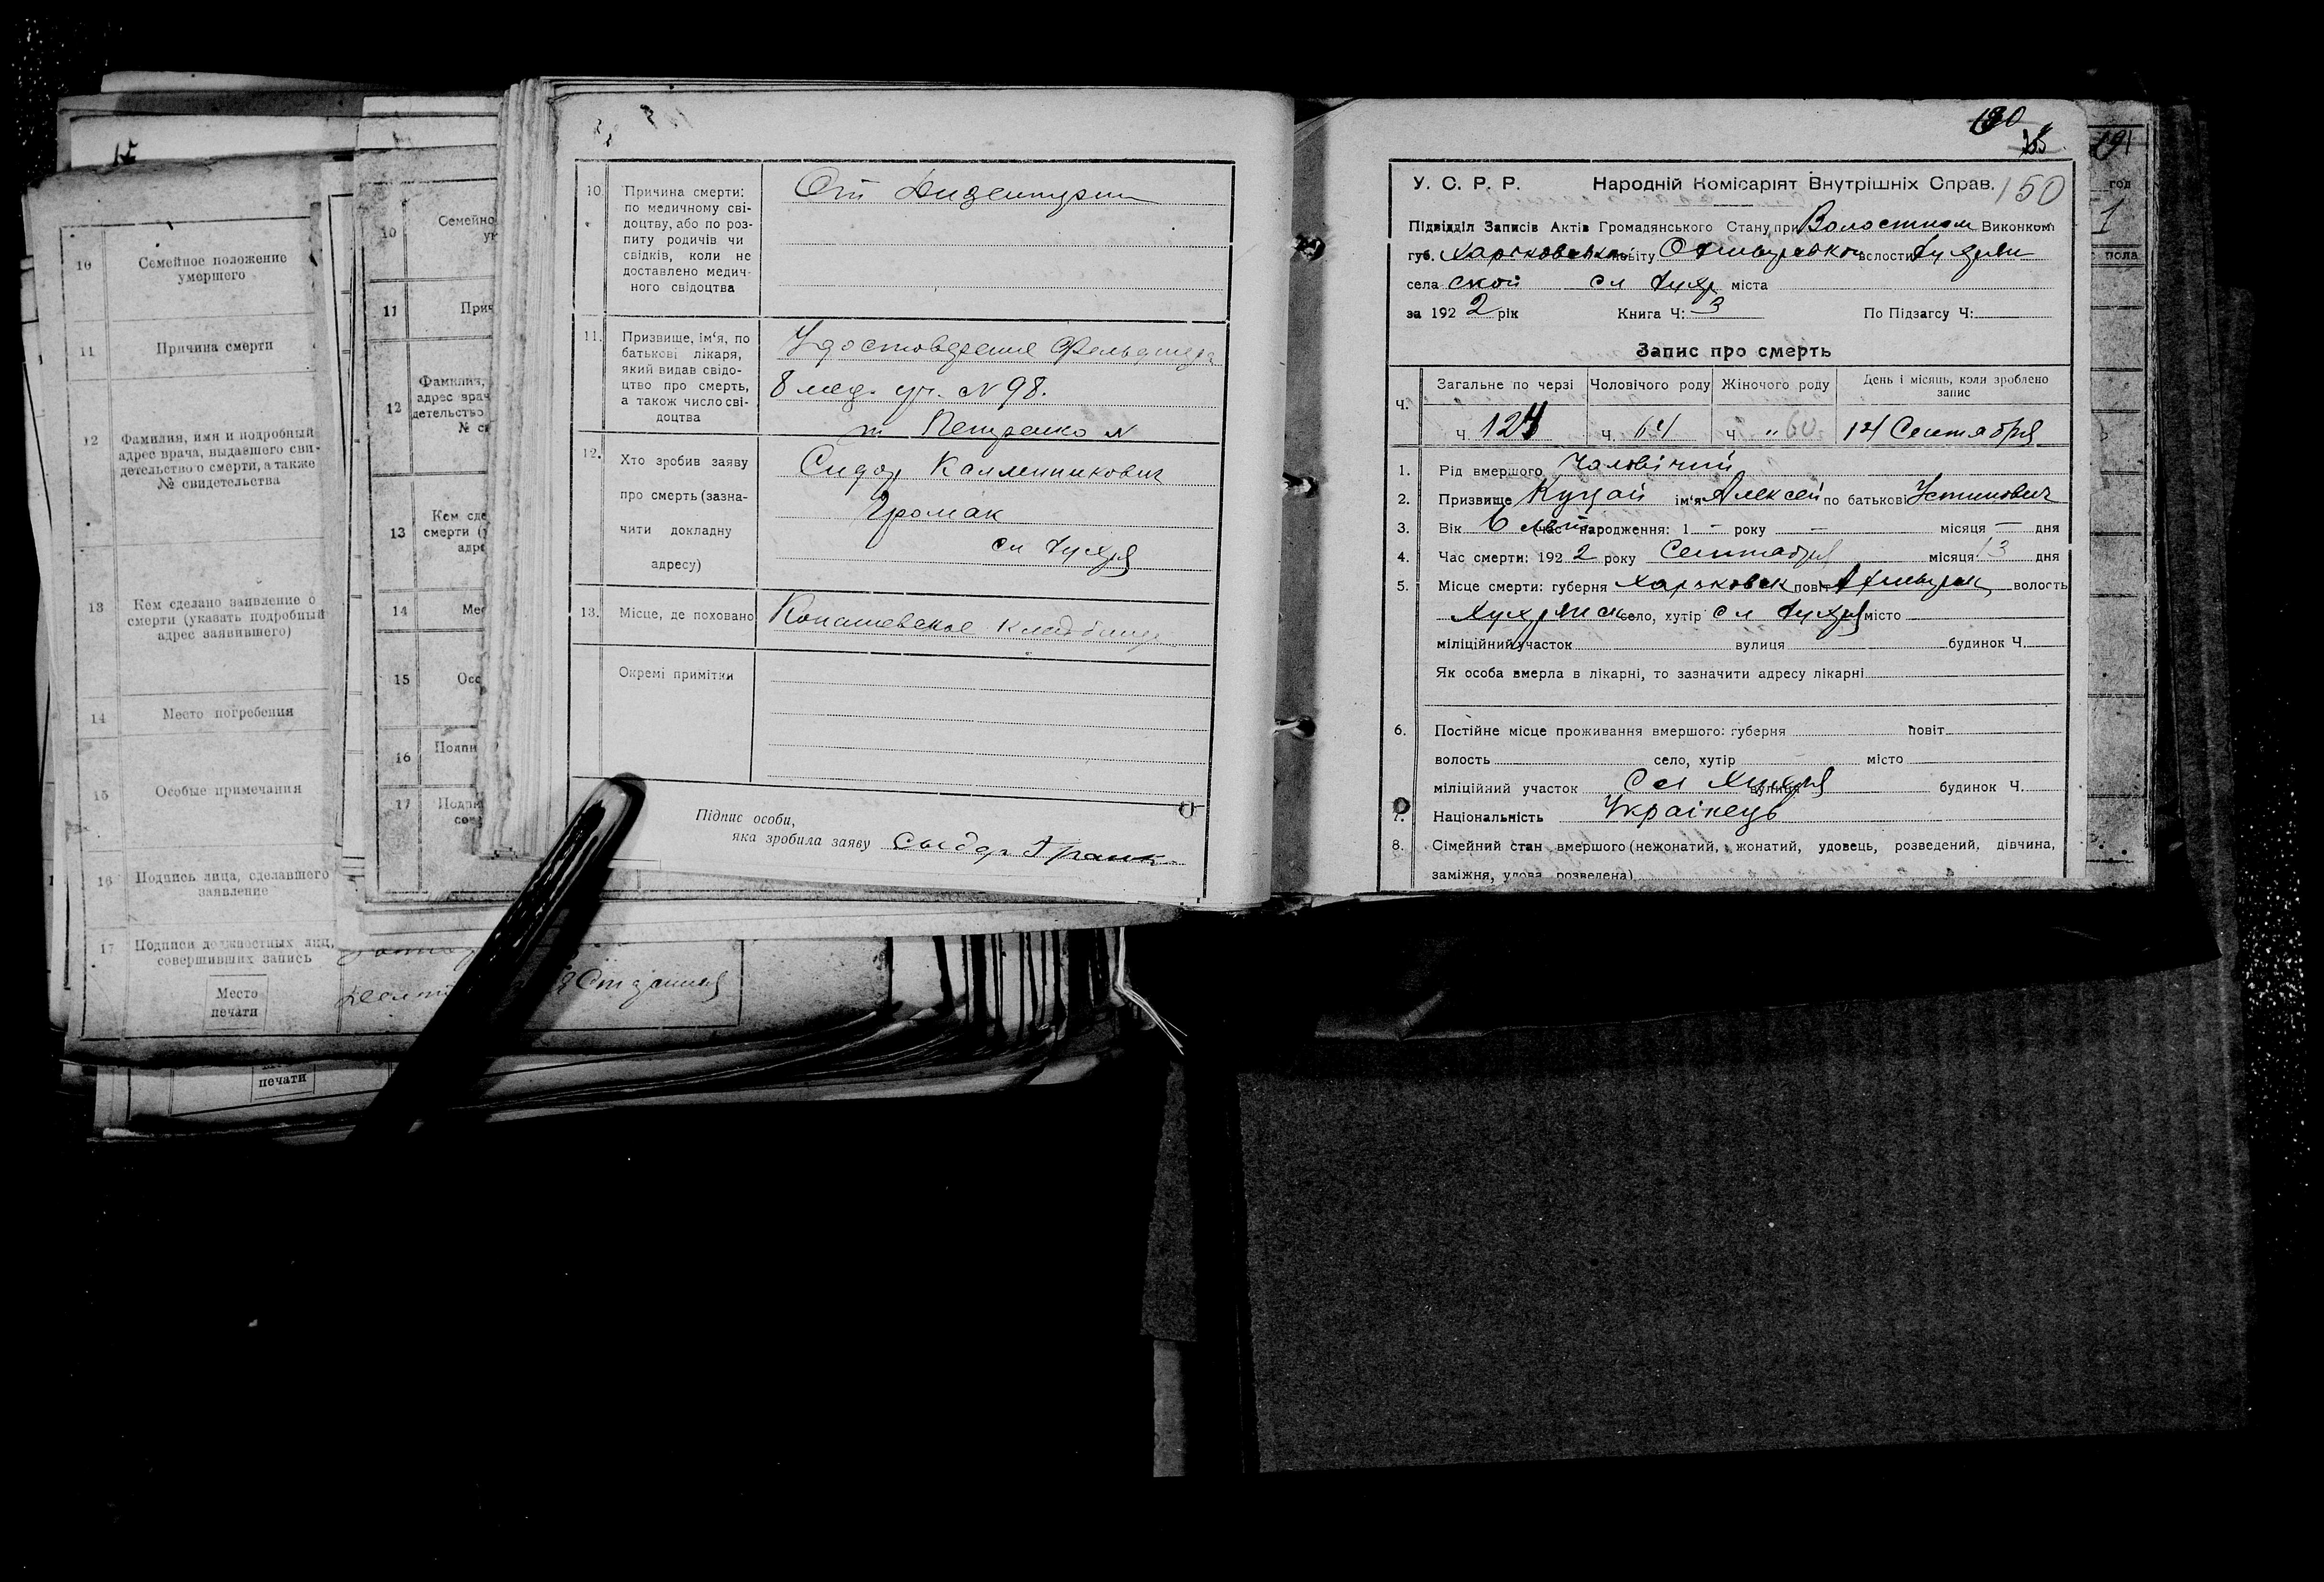 15
10 Семейное положение
умершего
11 Причина смерти
12 Фамилия, имя и подробный
адрес врача, выдавшего сви-
детельство о смерти, а также
№ свидетельства
13 Кем сделано заявление о
смерти (указать подробный
адрес заявившего)
14 Место погребения
15 Особые примечания
16 Подпись лица, сделавшего
заявление
17 Подписи должностных лиц,
совершивших запись
Место
печати
печати
10 Семейно
11 Прич
12 Фамилия,
адрес врач
детельство
№ св
13 Кем сде
смерти (у
адре
14 Мес
15 Осо
16 Подпи
17 Подпи
10. Причина смерти:
по медичному сві-
доцтву, або по роз-
питу родичів чи
свідків, коли не
доставлено медич-
ного свідоцтва
От Дизентерии
11. Призвище, ім'я, по
батькові лікаря,
який видав свідо-
цтво про смерть,
а також число сві-
доцтва
Удостоверение Фельдшера
8 мед. уч. № 98.
Петренко
12. Хто зробив заяву
про смерть (зазна-
чити докладну
адресу)
Сидор Каленикович
Громак
сл Хухря
13. Місце, де поховано
Кладбище
Окремі примітки
Підпис особи,
яка зробила заяву Сыдор
190
150
У. С. Р. Р. Народній Комісаріят Внутрішніх Справ.
Підвідділ Записів Актів Громадянського Стану при Волостном Виконком
губ. Харьковской повіту Ахтырской волости Хухрян
села ской сл Хухр міста
за 1922 рік Книга Ч: 3 По Підзагсу Ч:
Запис про смерть
Ч. Загальне по черзі Чоловічого роду Жіночого роду День і місяць, коли зроблено
запис
ч. 124 ч. 64 ч. " 60 14 Сентября
1. Рід вмершого Чоловічий
2. Призвище Куцой ім'я Алексей по батькові Устинович
3. Вік 6 лет (час народження: 1 — року — місяця — дня
4. Час смерти: 1922 року Сентября місяця 13 дня
5. Місце смерти: губерня Харьковск повіт Ахтырск волость
Хухрянск село, хутір сл Хухря місто
міліційний участок вулиця будинок Ч.
Як особа вмерла в лікарні, то зазначити адресу лікарні
6. Постійне місце проживання вмершого: губерня повіт
волость село, хутір місто
міліційний участок Сл Хухря вулиця будинок Ч.
7. Національність Українець
8. Сімейний стан вмершого (нежонатий, жонатий, удовець, розведений, дівчина,
заміжня, удова розведена)
год
1
пола